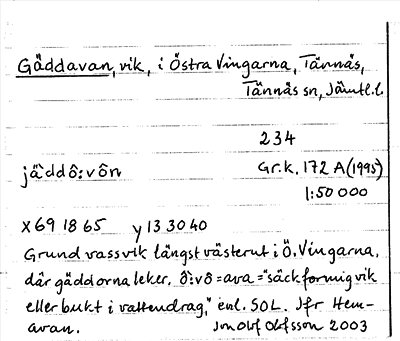 Gäddavan, vik, i Östra Vingarna, Tännäs,
Tännäs sn, Jämtl.l.
234
jäddô:vôn
Gr.k. 172 A (1995)
1:50 000
x 69 18 65 y 13 30 40
Grund vassvik längst västerut i Ö. Vingarna,
där gäddorna leker. ô:vô = ava = "säckformig vik
eller bukt i vattendrag," enl. SOL. Jfr Hem-
avan. Jan Olof Olofsson 2003